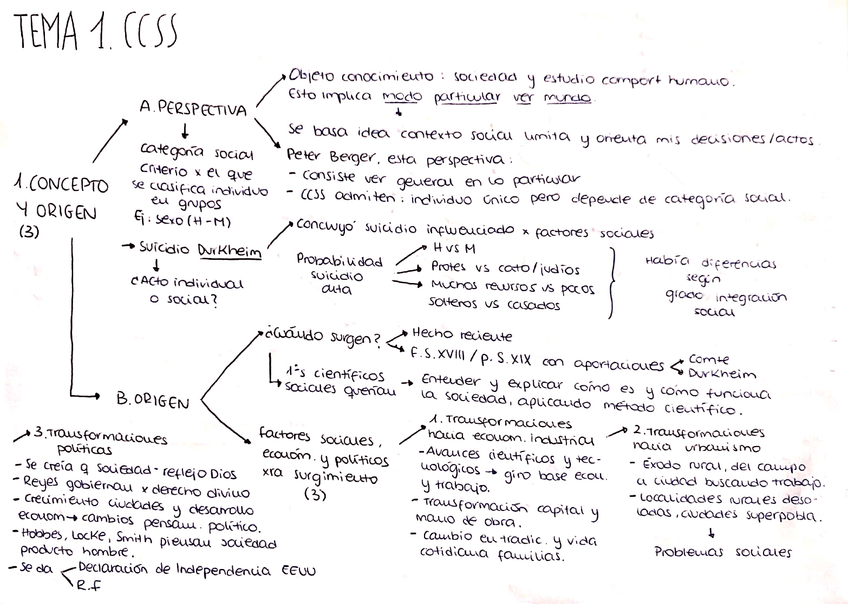 TEMA 1. CCSS
1. CONCEPTO
Y ORIGEN
(3)
A. PERSPECTIVA
Objeto conocimiento : sociedad y estudio comport humano.
Esto implica modo particular ver mundo.
Se basa idea contexto social limita y orienta mis decisiones/actos.
Peter Berger, esta perspectiva:
- consiste ver general en lo particular
- CCSS admiten: individuo único pero depende de categoría social.
categoría social
criterio x el que
se clasifica individuo
en grupos
Ej: sexo (H-M)
Suicidio Durkheim
¿Acto individual
o social?
Concluyó suicidio influenciado x factores sociales
Probabilidad
suicidio
alta
H vs M
Protes vs cato/judíos
Muchos recursos vs pocos
solteros vs casados
Había diferencias
según
grado integración
social
B. ORIGEN
¿Cuándo surgen?
Hecho reciente
F. S. XVIII / p. S. XIX con aportaciones
Comte
Durkheim
1ºs científicos
sociales querían
Entender y explicar cómo es y cómo funciona
la sociedad, aplicando método científico.
Factores sociales,
económ. y políticos
xra surgimiento
(3)
1. Transformaciones
hacia econom. industrial
- Avances científicos y tec-
nológicos → giro base econ.
y trabajo.
- Transformación capital y
mano de obra.
- Cambio en tradic. y vida
cotidiana familias.
2. Transformaciones
hacia urbanismo
- Éxodo rural, del campo
a ciudad buscando trabajo.
- Localidades rurales deso-
ladas, ciudades superpobla.
Problemas sociales
3. Transformaciones
políticas
- Se creía q sociedad - reflejo Dios
- Reyes gobiernan x derecho divino
- Crecimiento ciudades y desarrollo
econom → cambios pensam. político.
- Hobbes, Locke, Smith piensan sociedad
producto hombre.
- Se da
Declaración de Independencia EEUU
R.f